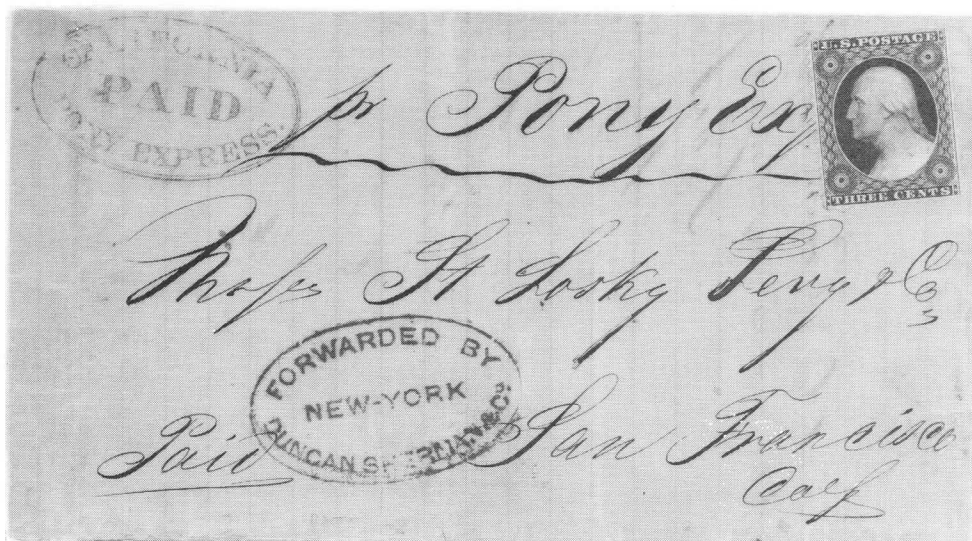 CALIFORNIA
PAID
PONY EXPRESS.
pr Pony Exp
U.S. POSTAGE
THREE CENTS
St Losky Levy & Co
FORWARDED BY
NEW-YORK
DUNCAN, SHERMAN & Co
Paid
San Francisco
Cal